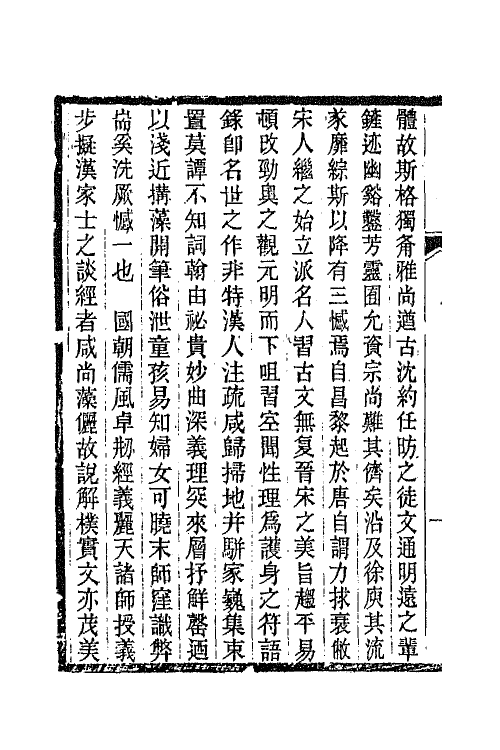 體故斯格獨奇雅尚遒古沈約任昉之徒文通明遠之輩
鏟迹幽谿鑿芳靈囿允資宗尚難其儕矣沿及徐庾其流
寖靡綜斯以降有三憾焉自昌黎起於唐自謂力拯衰敝
宋人繼之始立派名人習古文無复晉宋之美旨趨平易
頓改勁奧之觀元明而下咀習空聞性理爲護身之符語
錄卽名世之作非特漢人注疏咸歸掃地并駢家巍集束
置莫譚不知詞翰由祕貴妙曲深義理突來層抒鮮罄迺
以淺近搆藻開筆俗泄童孩易知婦女可曉末師窪識弊
耑奚洗厥憾一也　國朝儒風卓刱經義麗天諸師授義
步擬漢家士之談經者咸尚藻儷故說解樸實文亦茂美